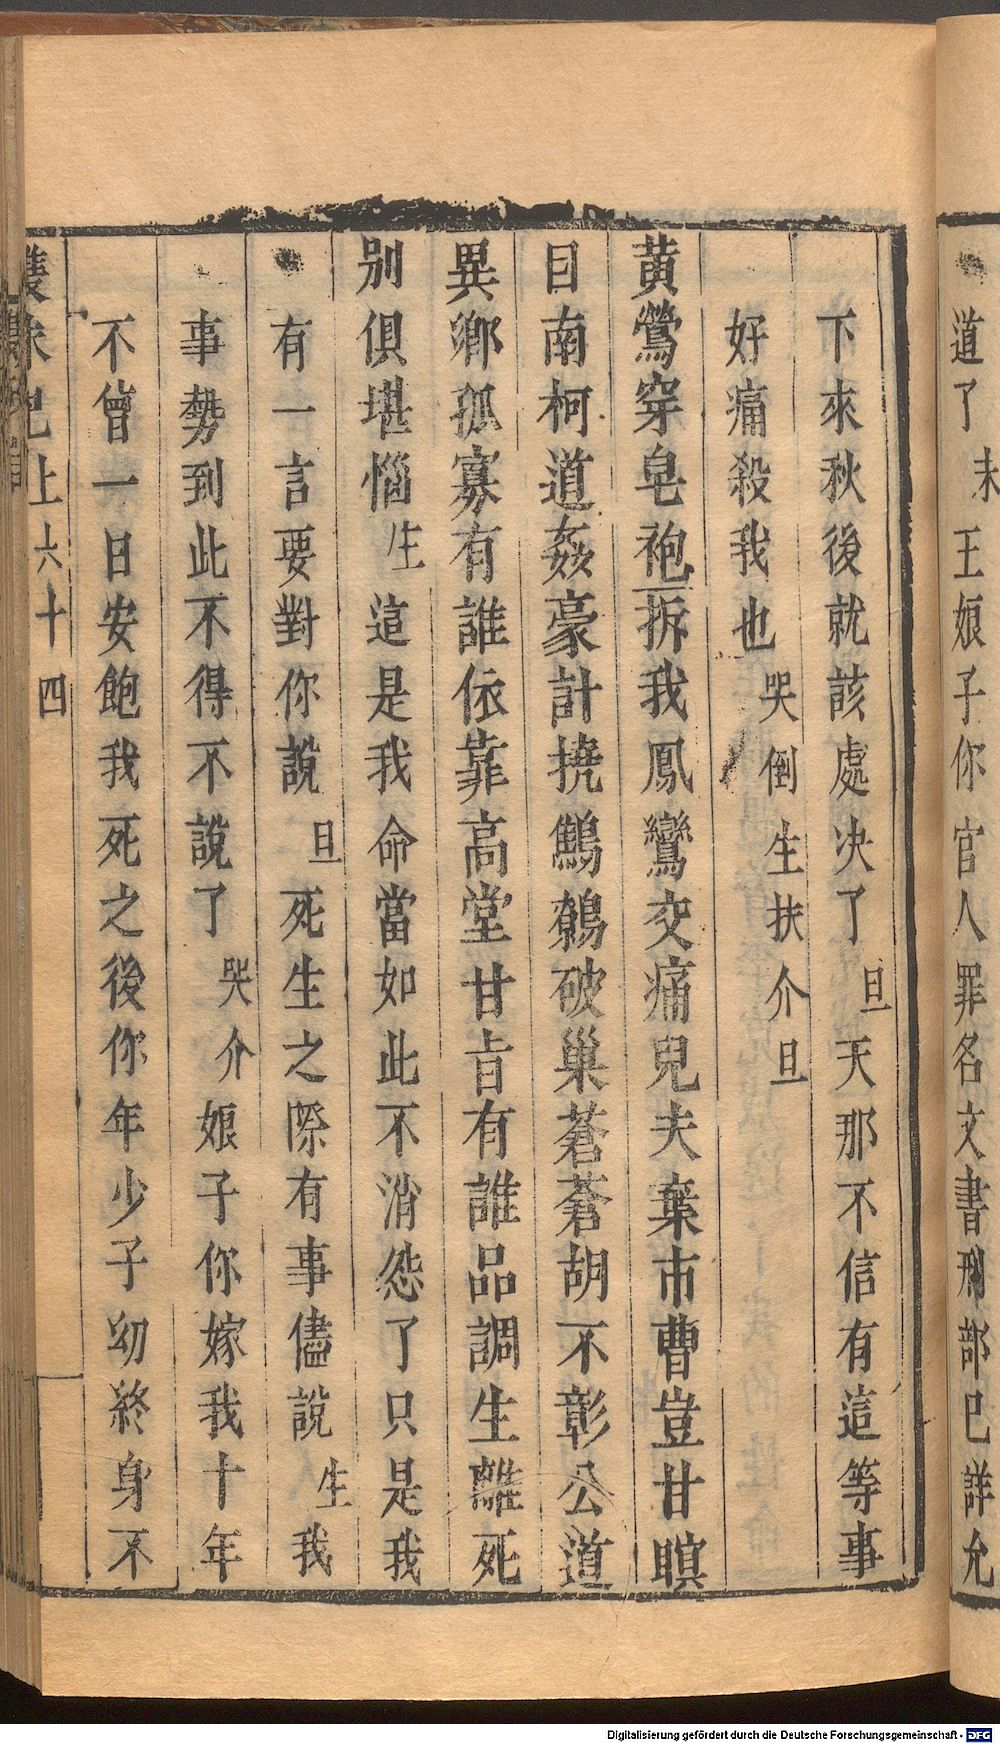 道了末王娘子你官人罪名文書刑部已詳允
下來秋後就該處决了旦天那不信有這等事
好痛殺我也哭倒生扶介旦
黃鶯穿皂袍拆我鳳鸞交痛兒夫棄市曹豈甘瞑
目南柯道姦豪計撓鷦鷯破巢蒼蒼胡不彰公道
異鄉孤寡有誰依靠高堂甘旨有誰品調生離死
别俱堪惱生這是我命當如此不消怨了只是我
有一言要對你說旦死生之際有事儘說生我
事勢到此不得不說了哭介娘子你嫁我十年
不曾一日安飽我死之後你年少子幼終身不
雙珠記上六十四
Digitalisierung gefördert durch die Deutsche Forschungsgemeinschaft - DFG